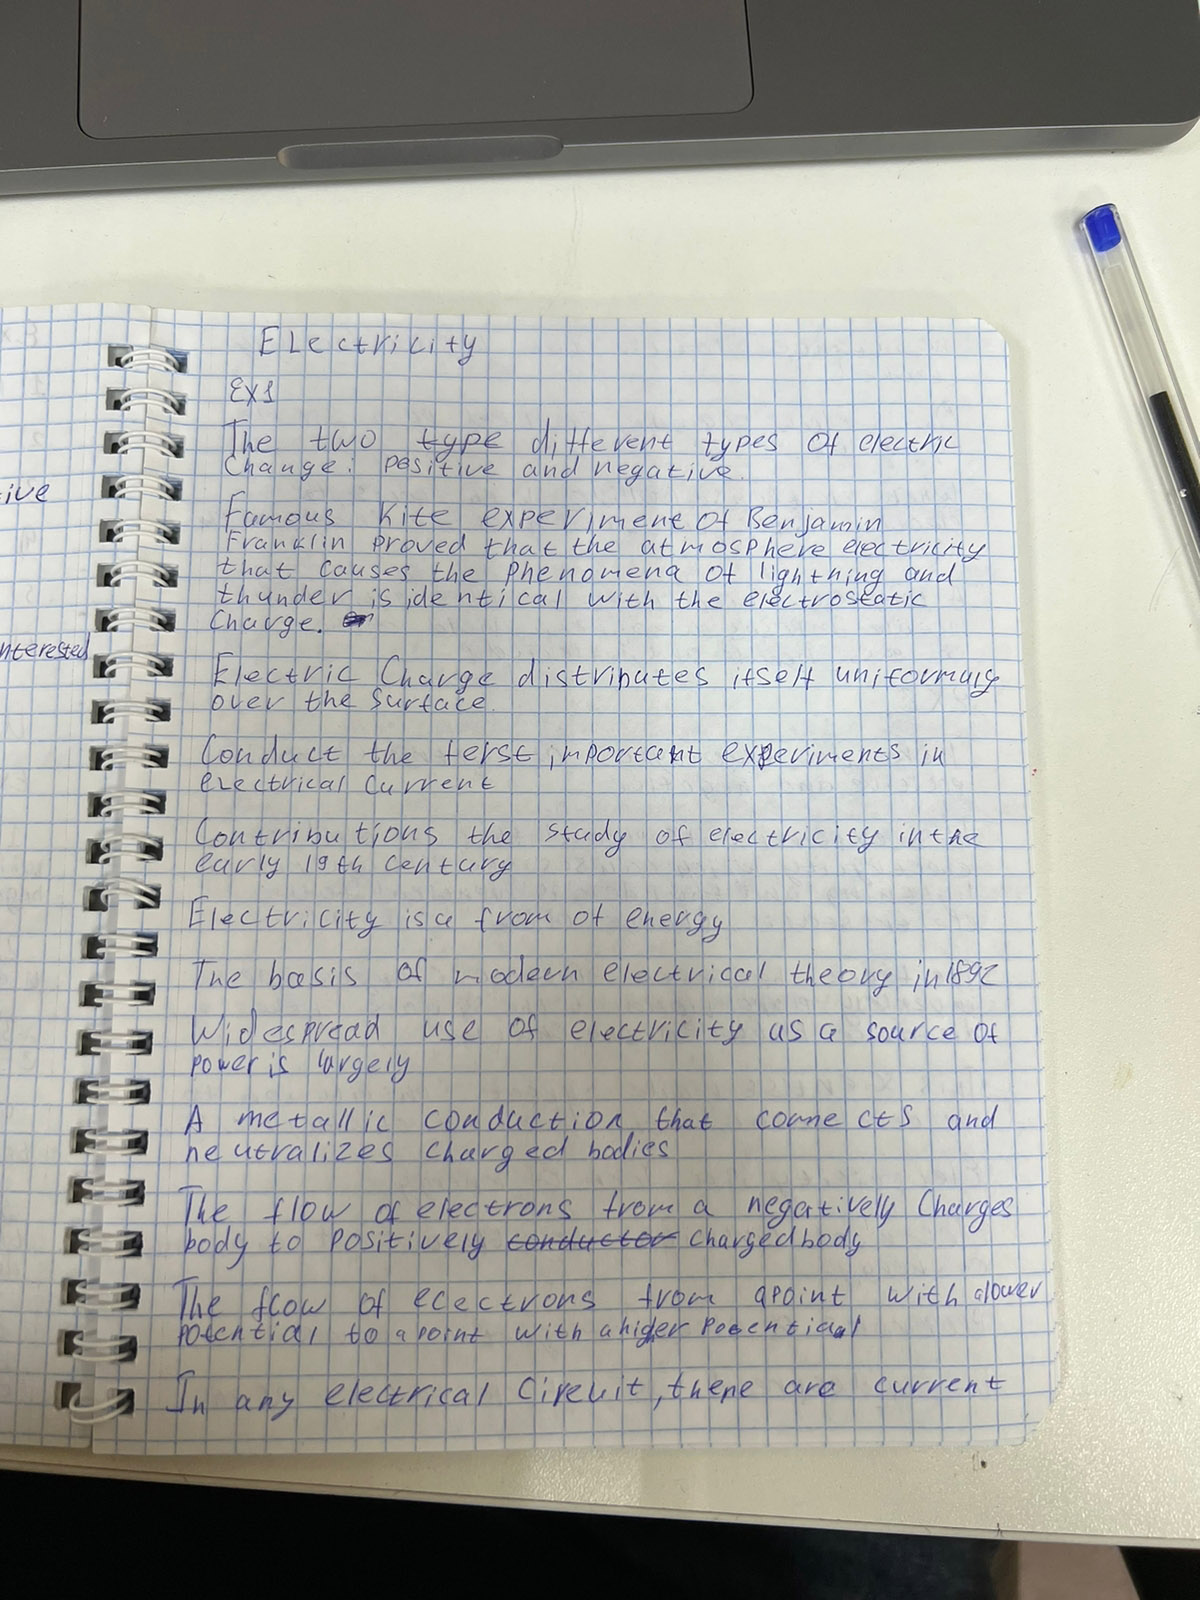 Electricity
Ex1
The two type different types of electric
Change: positive and negative.
Famous Kite experiment of Benjamin
Franklin proved that the atmosphere electricity
that causes the phenomena of lightning and
thunder is identical with the electrostatic
Charge.
Electric Charge distributes itself uniformuly
over the surface.
Conduct the ferst important experiments in
electrical current
Contributions the study of electricity in the
early 19th century
Electricity is a from of energy
The basis of modern electrical theory in 1892
Widespread use of electricity as a source of
power is largely
A metallic conduction that connects and
neutralizes charged bodies
The flow of electrons from a negatively Charges
body to positively conductor charged body
The flow of electrons from a point with a lower
potential to a point with a higer potential
In any electrical Circuit, there are current
ive
nterested